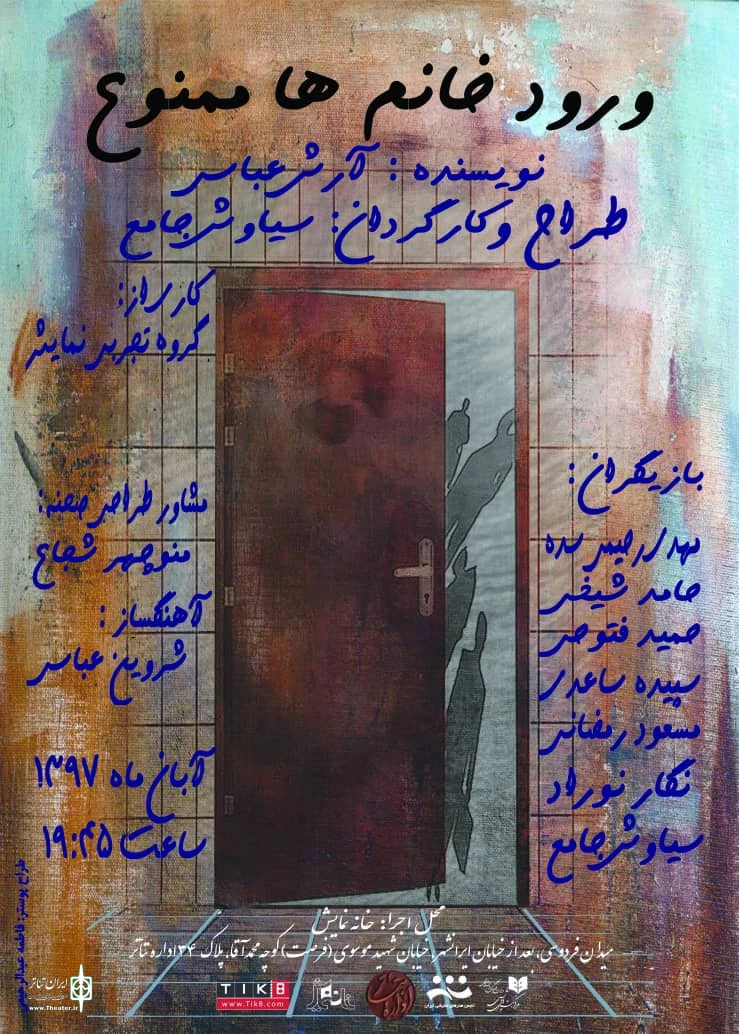 ورود خانم ها ممنوع
نویسنده : آرش عباسی
طراح وکارگردان: سیاوش جامع
کاری از:
گروه تجربی نمایش
بازیگران:
مهدی رحیمی سده
حامد شیخی
حمید فتوحی
سپیده ساعدی
مسعود رمضانی
نگار نوراد
سیاوش جامع
مشاور طراحی صحنه:
منوچهر شجاع
آهنگساز :
شروین عباسی
آبان ماه ۱۳۹۷
ساعت ۱۹:۴۵
محل اجرا: خانه نمایش
میدان فردوسی، بعد از خیابان ایرانشهر، خیابان شهید موسوی (فرصت) کوچه محمدآقا، پلاک ۳۴ اداره تئاتر
طراح پوستر: فاطمه عبدالرحیمی
ایران تئاتر
www.Theater.ir
TIK8
www.Tik8.com
انجمن هنرهای نمایشی ایران